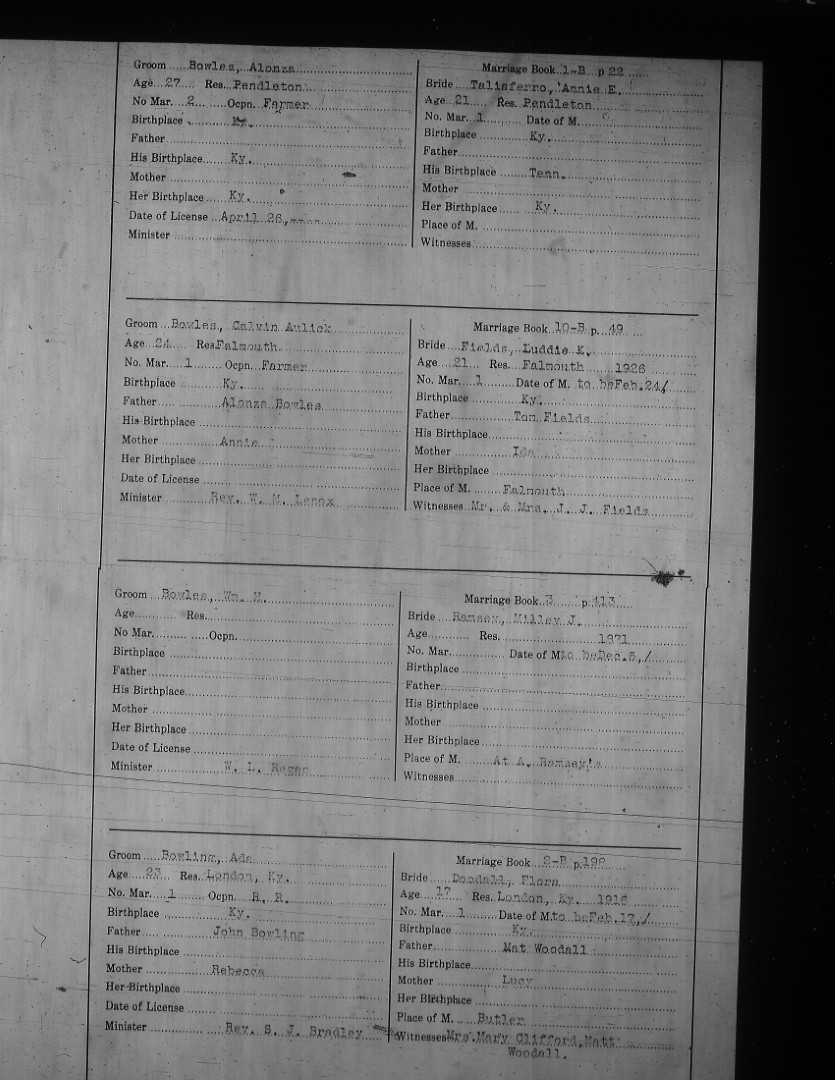 Groom Bowles, Alonza
Age 27 Res. Pendleton
No Mar. 2 Ocpn. Farmer
Birthplace Ky.
Father
His Birthplace Ky.
Mother
Her Birthplace Ky.
Date of License April 26,
Minister
Marriage Book 1-B p 22
Bride Taliaferro, Annie E.
Age 21 Res. Pendleton
No. Mar. 1 Date of M.
Birthplace Ky.
Father
His Birthplace Tenn.
Mother
Her Birthplace Ky.
Place of M.
Witnesses
Groom Bowles, Calvin Aulick
Age 24 Res. Falmouth.
No. Mar. 1 Ocpn. Farmer
Birthplace Ky.
Father Alonza Bowles
His Birthplace
Mother Annie
Her Birthplace
Date of License
Minister Rev. W. M. Lenox
Marriage Book 10-B p. 49
Bride Fields, Luddie K.
Age 21 Res. Falmouth 1926
No. Mar. 1 Date of M. to beFeb.24/
Birthplace Ky.
Father Tom Fields
His Birthplace
Mother Ida
Her Birthplace
Place of M. Falmouth
Witnesses Mr. & Mrs. J. J. Fields
Groom Bowles, Wm. H.
Age Res.
No Mar. Ocpn.
Birthplace
Father
His Birthplace
Mother
Her Birthplace
Date of License
Minister W. L. Regan
Marriage Book 3 p 413
Bride Ramsey, Milley J.
Age Res. 1871
No. Mar. Date of M to beDec.5,/
Birthplace
Father
His Birthplace
Mother
Her Birthplace
Place of M. At A. Ramsey's
Witnesses
Groom Bowling, Ada
Age 23 Res. London, Ky.
No. Mar. 1 Ocpn. R. R.
Birthplace Ky.
Father John Bowling
His Birthplace
Mother Rebecca
Her Birthplace
Date of License
Minister Rev. S. J. Bradley
Marriage Book 2-B p. 198
Bride Flora
Age 17 Res. London, Ky. 1916
No. Mar. 1 Date of M. to beFeb.17,/
Birthplace Ky.
Father Mat Woodall
His Birthplace
Mother Lucy
Her Birthplace
Place of M. Butler
Witnesses Mrs. Mary Clifford, Matt
Woodall.